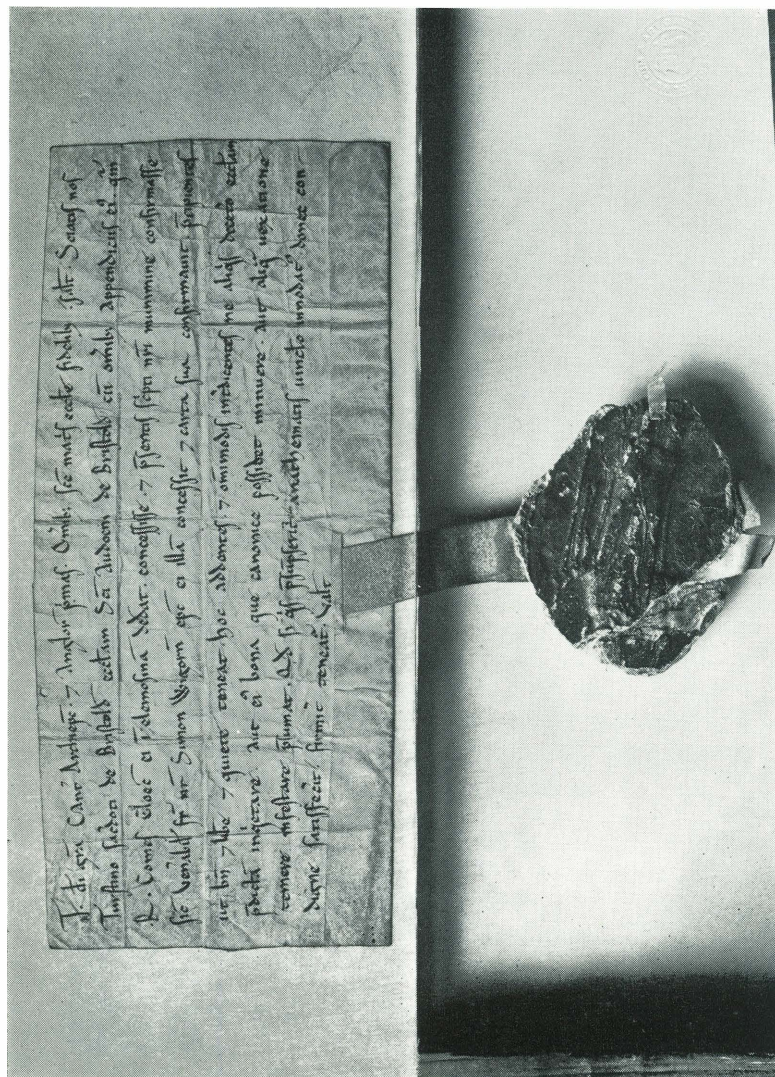 T. di gr̃a Cant̃ Archiep̃c . ⁊ Angloꝝ p̃mas Om̃ib; sc̃e mat̃s eccl̃e fidelib; salt̃ . Sciatis nos
Turstino sac̃doti de Bristold eccl̃am Sc̃i Audoeni de Bristold cũ om̃ib; appendiciis ei⁹ q̃m
R. Comes Gloec̃ ei ĩ elemosina dedit concessisse ⁊ p̃sentis sc̃pti nr̃i munimine confirmasse
sic̃ venabil̃ fr̃ nr̃ Simon Wigorn̄ ep̃c ei illã concessit ⁊ carta sua confirmavit p̃cipientes
ut bñ ⁊ libe ⁊ quiete teneat hoc addentes ⁊ om̃imodis int̃dicentes ne aliq̃s de c̃o eccl̃am
p̃dictã inq̃etare aut ei⁹ bona que canonice possidet minuere . aut aliq̃ uexatione
temere infestare p̃sumat . Qd̃ si q̃s p̃sũpserit anathematis uinclo innodat̃ donec con
digne satisfec̃it . firmit̃ teneat̃ . Val̃t